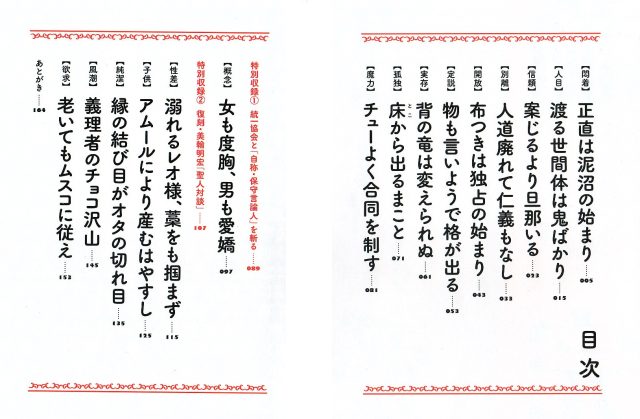 目次
【悶着】 正直は泥沼の始まり……005
【人目】 渡る世間体は鬼ばかり……015
【信頼】 案じるより旦那いる……023
【別離】 人道廃れて仁義もなし……033
【開放】 布つきは独占の始まり……043
【定説】 物も言いようで格が出る……053
【実存】 背の竜は変えられぬ……061
【孤独】 床から出るまこと……071
とこ
【魔力】 チューよく合同を制す……081
特別収録① 統一協会と「自称・保守言論人」を斬る……089
【概念】 女も度胸、男も愛嬌……097
特別収録② 復刻・美輪明宏「聖人対談」……107
【性差】 溺れるレオ様、藁をも掴まず……115
【子供】 アムールにより産むはやすし……125
【純潔】 縁の結び目がオタの切れ目……135
【風潮】 義理者のチョコ沢山……145
【欲求】 老いてもムスコに従え……153
あとがき……164